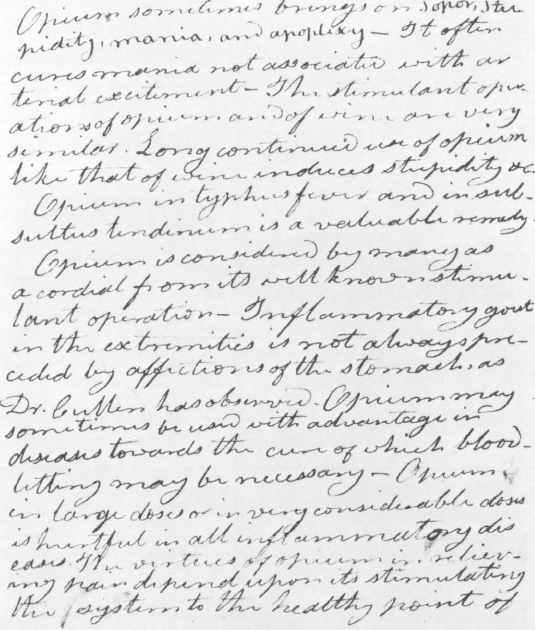 Opium sometimes brings on sopor, stu-
pidity, mania, and apoplexy – It often
cures mania not associated with ar
terial excitement – The stimulant oper-
ations of opium and of wine are very
similar. Long continued use of opium
like that of wine induces stupidity &c.
Opium in typhus fever and in sub-
sultus tendinum is a valuable remedy.
Opium is considered by many as
a cordial from its well known stimu-
lant operation – Inflammatory gout
in the extremities is not always pre-
ceded by affections of the stomach, as
Dr. Cullen has observed. Opium may
sometimes be used with advantage in
diseases towards the cure of which blood-
letting may be necessary – Opium,
in large doses or in very considerable doses
is hurtful in all inflammatory dis
eases. The virtues of opium in reliev-
ing pain depend upon its stimulating
the system to the healthy point of